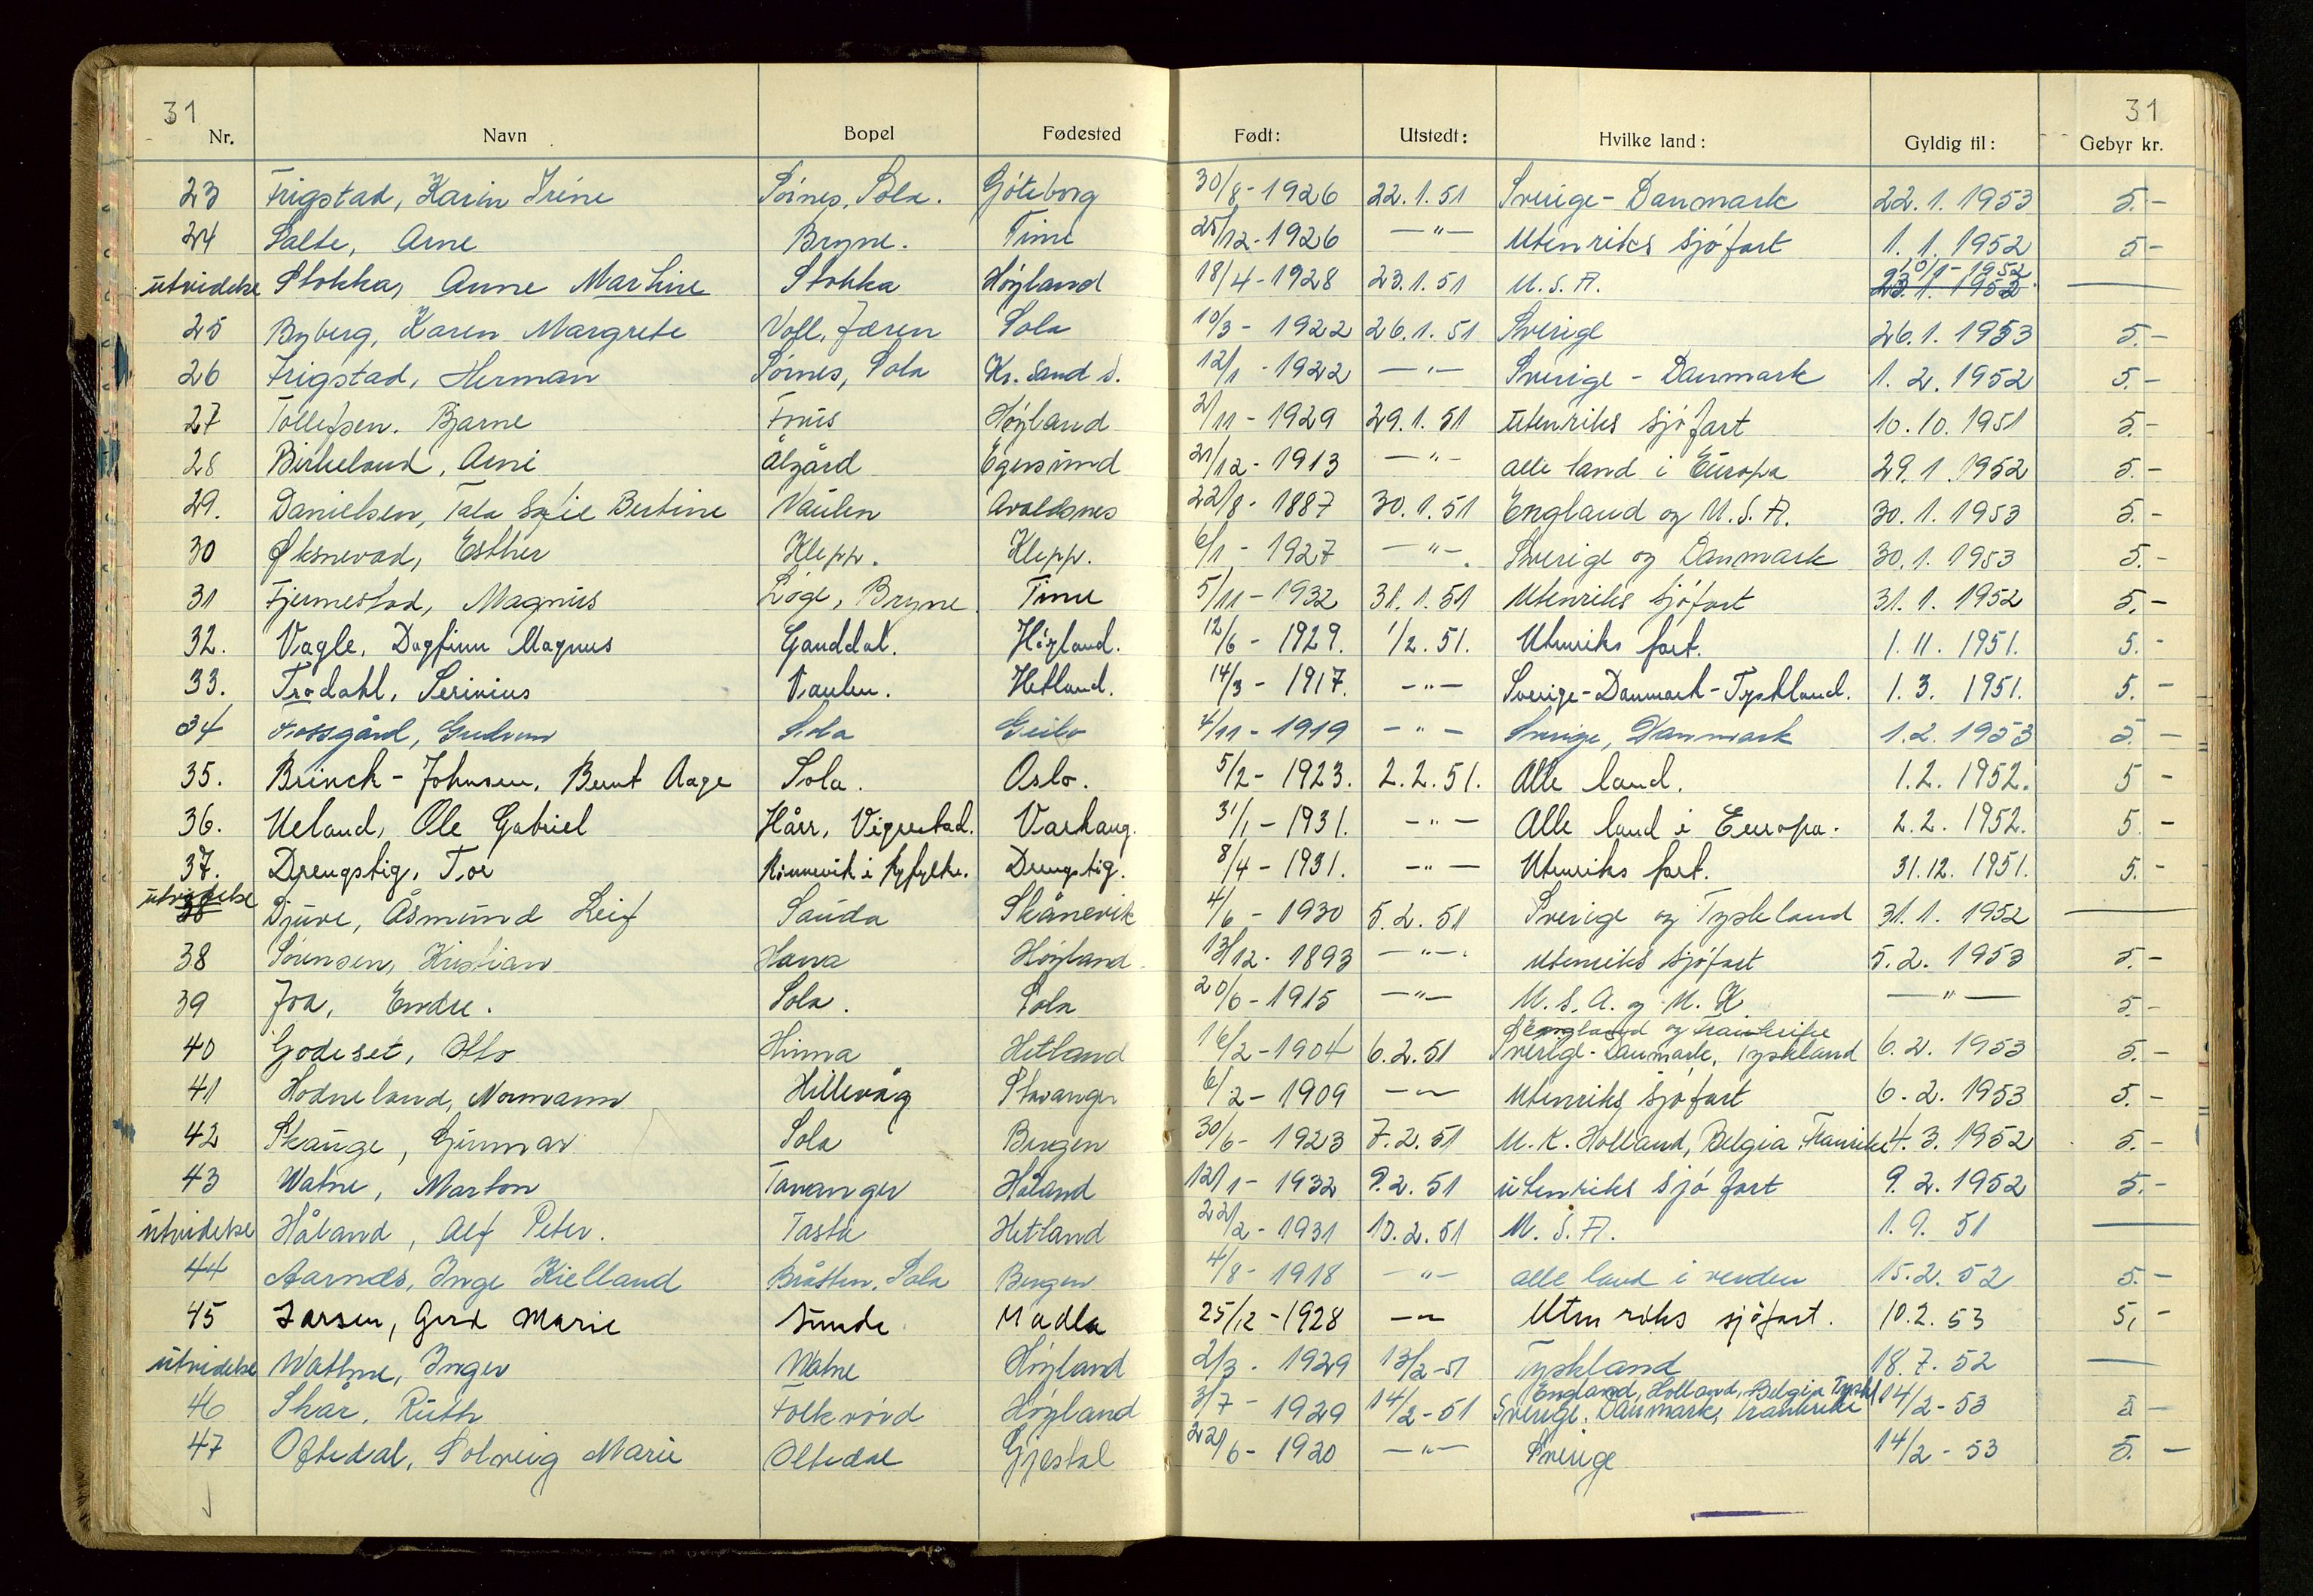 31 31
Nr. Navn Bopel Fødested Født: Utstedt: Hvilke land: Gyldig til: Gebyr kr.
23 Frigstad, Karin Iréne Sörnes, Sola. Göteborg 30/8-1926 22.1.51 Sverige-Danmark 22.1.1953 5.-
24 Salte, Arne Bryne. Time 25/12-1926 -"- Utenriks sjöfart 1.1.1952 5-
utvidelse Stokka, Anne Martine Stokka Höyland 18/4-1928 23.1.51 U.S.A. 10/1-1952 23.1.1953 —
25 Byberg, Karen Margrete Voll, Jæren Sola 10/3-1922 26.1.51 Sverige 26.1.1953 5.-
26 Frigstad, Herman Sörnes, Sola Kr. Sand S. 12/1-1922 -"- Sverige - Danmark 1.2.1952 5.-
27 Tollefsen. Bjarne Foss Höyland 2/11-1929 29.1.51 utenriks sjöfart 10.10.1951 5.-
28 Birkeland, Arne Ålgård Egersund 21/12-1913 -"- alle land i Europa 29.1.1952 5.-
29. Danielsen, Tala Sofie Bertine Vaulen Avaldsnes 22/8-1887 30.1.51 England og U.S.A. 30.1.1953 5.-
30 Øksnevad, Esther Klepp. Klepp. 6/1-1927 -"- Sverige og Danmark 30.1.1953 5.-
31 Fjermestad, Magnus Löge, Bryne Time 5/11-1932 31.1.51 Utenriks sjöfart 31.1.1952 5.-
32. Vagle, Dagfinn Magnus Ganddal. Höyland. 12/6-1929. 1/2.51. Utenriks fart. 1.11.1951. 5.-
33. Trodahl, Serinius Vaulen. Hetland. 14/3-1917. -"- Sverige-Danmark-Tyskland. 1.3.1951. 5.-
34 Fossgård, Gudrun Sola Geilo 4/11-1919 -"- Sverige, Danmark 1.2.1953 5.-
35. Brinch-Johnsen, Bernt Aage Sola. Oslo. 5/2-1923. 2.2.51. Alle land. 1.2.1952. 5-
36. Ueland, Ole Gabriel Hårr, Vigrestad. Varhaug. 31/1-1931. -"- Alle land i Europa. 2.2.1952. 5.-
37. Drengstig, Tor i Ryfylke. Drengstig. 8/4-1931. -"- Utenriks fart. 31.12.1951. 5.-
utvidelse 38 Djuve, Åsmund Leif Sauda Skånevik 4/6-1930 5.2.51 Sverige og Tyskland 31.1.1952 —
38 Sörensen, Kristian Hana Höyland. 13/12-1893 -"- utenriks sjöfart 5.2.1953 5.-
39 Joa, Endre. Sola. Sola 20/6-1915 -"- U.S.A. og U.K. -"- 5.-
40 Godeset, Otto Hinna Hetland 16/2-1904 6.2.51 England og Frankrike Sverige-Danmark, Tyskland 6.2.1953 5.-
41 Hodneland, Normann Hillevåg Stavanger 6/2-1909 -"- Utenriks sjöfart 6.2.1953 5.-
42 Skauge, Gunnar Sola Bergen 30/6-1923 7.2.51 U.K. Holland, Belgia Frankrike 4.3.1952 5.-
43 Watne, Marton Tananger Håland 12/1-1932 9.2.51 utenriks sjöfart 9.2.1952 5.-
utvidelse Håland, Alf Peter. Tasta Hetland 22/2-1931 10.2.51 U.S.A. 1.9.51 —
44 Aarnæs, Inge Kielland Bråtten, Sola Bergen 4/8-1918 -"- alle land i verden 15.2.52 5.-
45 Larsen, Gerd Marie Sunde Madla 25/12-1928 -"- Utenriks sjöfart. 10.2.53 5,-
utvidelse Wathne, Inger Watne Höyland 2/3-1929 13/2-51 Tyskland 18.7.52 —
46 Skår, Ruth Folkvörd Höyland 3/7-1929 14/2-51 England, Holland, Belgia Tyskl Sverige, Danmark, Frankrike 14/2-53 5-
47 Oftedal, Solveig Marie Oltedal Gjestal 22/6-1920 -"- Sverige 14/2-53 5.-